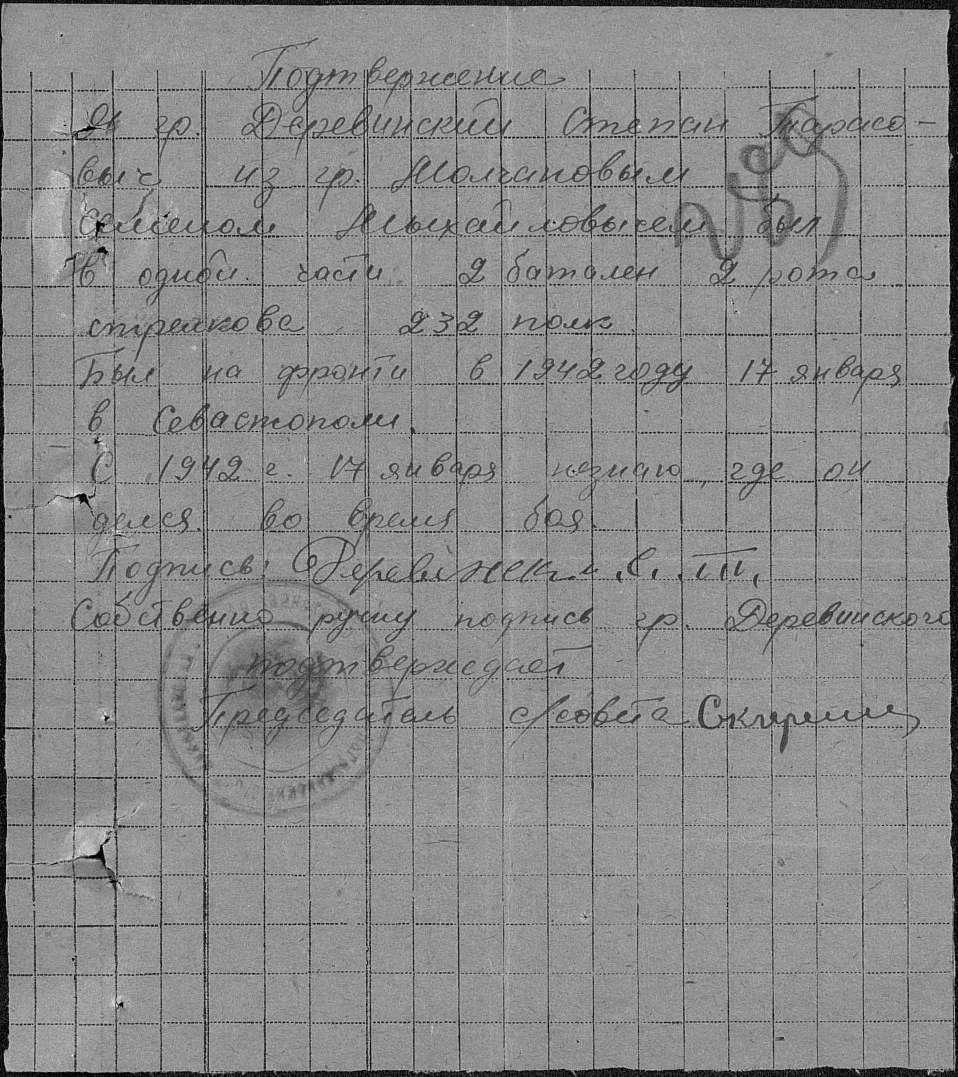 Подтвержение
Я гр. Деревинский Степан Тарасо-
выч из гр. Молчановым
Семеном Мыхайловычем был
В одной части 2 батален 2 рота
стрелкова 232 полк
Был на фронти в 1942 году 17 января
в Севастополи.
С 1942 г. 17 января незнаю, где он
делся во время боя.
Подпись: С. Т.
Собственно ручну подпись гр. Деревинского
подтверждает
Председатель с/совета